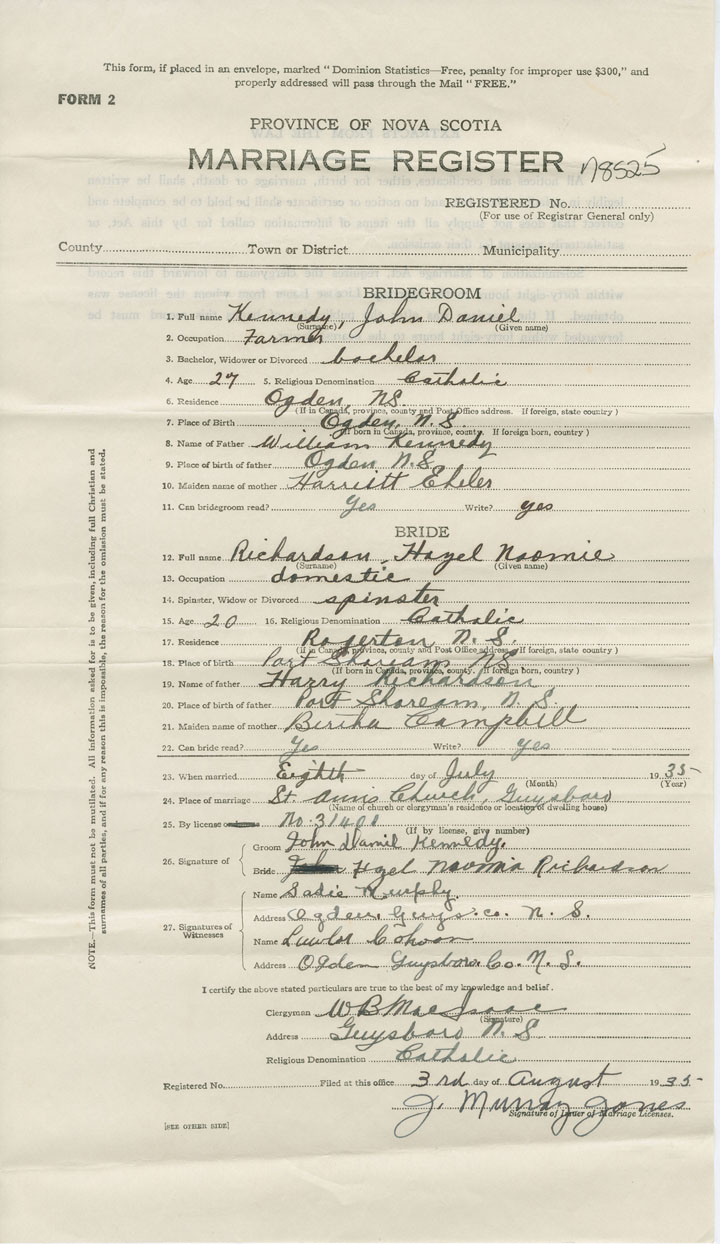 This form, if placed in an envelope, marked "Dominion Statistics—Free, penalty for improper use $300," and
properly addressed will pass through the Mail "FREE."
FORM 2
PROVINCE OF NOVA SCOTIA
MARRIAGE REGISTER
78525
REGISTERED No.
(For use of Registrar General only)
County Town or District Municipality
BRIDEGROOM
1. Full name Kennedy, John Daniel
(Surname) (Given name)
2. Occupation Farmer
3. Bachelor, Widower or Divorced bachelor
4. Age 27 5. Religious Denomination Catholic
6. Residence Ogden, NS.
(If in Canada, province, county and Post Office address. If foreign, state country)
7. Place of Birth Ogden, N.S.
(If born in Canada, province, county. If foreign born, country)
8. Name of Father William Kennedy
9. Place of birth of father Ogden N.S.
10. Maiden name of mother Harriett Ehler
11. Can bridegroom read? Yes Write? yes
BRIDE
12. Full name Richardson, Hazel Naomie
(Surname) (Given name)
13. Occupation domestic
14. Spinster, Widow or Divorced spinster
15. Age 20 16. Religious Denomination Catholic
17. Residence Rogerton, N. S.
(If in Canada, province, county and Post Office address. If foreign, state country)
18. Place of birth Port Shoream NS
(If born in Canada, province, county. If foreign born, country)
19. Name of father Harry Richardson
20. Place of birth of father Port Shoream, N. S.
21. Maiden name of mother Bertha Campbill
22. Can bride read? Yes Write? yes
23. When married Eighth day of July 1935
(Month) (Year)
24. Place of marriage St. Ann's Church, Guysboro
(Name of church or clergyman's residence or location of dwelling house)
25. By license No. 31401
(If by license, give number)
26. Signature of
Groom John Daniel Kennedy.
Bride Hazel Naomia Richardson
27. Signatures of
Witnesses
Name Sadie Murphy.
Address Ogden, Guys. co. N. S.
Name Cohoon
Address Ogden Guysboro. Co. N. S.
I certify the above stated particulars are true to the best of my knowledge and belief.
Clergyman W B MacIsaac
(Signature)
Address Guysboro N. S.
Religious Denomination Catholic
Registered No. Filed at this office 3rd day of August 1935
J. Murray Jones
Signature of Issuer of Marriage Licenses.
[SEE OTHER SIDE]
NOTE.—This form must not be mutilated. All information asked for is to be given, including full Christian and
surnames of all parties, and if for any reason this is impossible, the reason for the omission must be stated.